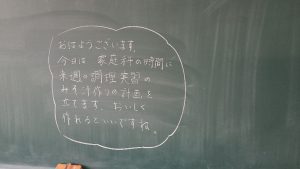 おはようございます。
今日は、家庭科の時間に
来週の調理実習の
みそ汁作りの計画を
立てます。おいしく
作れるといいですね。